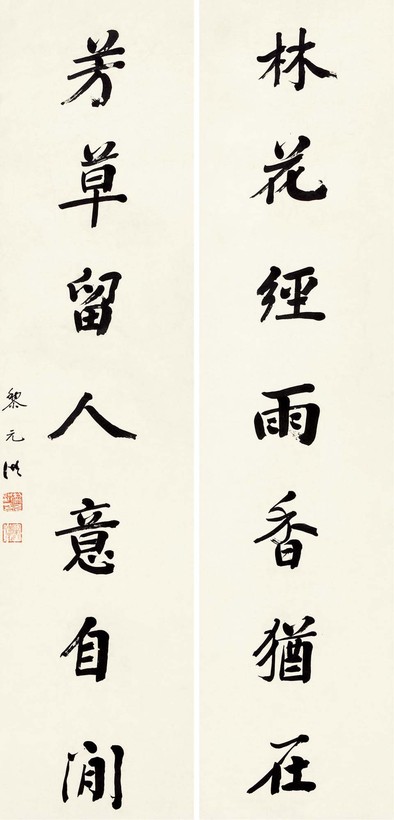 林花經雨香猶在
芳草留人意自閒
黎元洪